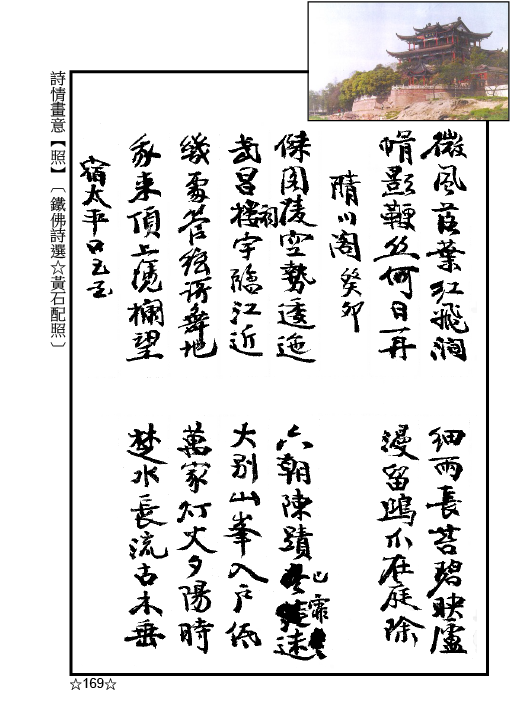 微風落葉紅飛澗 細雨長苔碧映廬
帽影鞭丝何日再 漫留鴻爪在庭除
晴川阁 癸卯
傑閣陵空勢逶迤 六朝陳蹟已霏迷
昌樓祠宇臨江近 大别山峯入户低
幾處管弦歌舞地 萬家灯火夕陽時
我来頂上憑欄望 楚水長流古木垂
宿太平口
詩情畫意【照】〔鐵佛詩選☆黃石配照〕
☆169☆